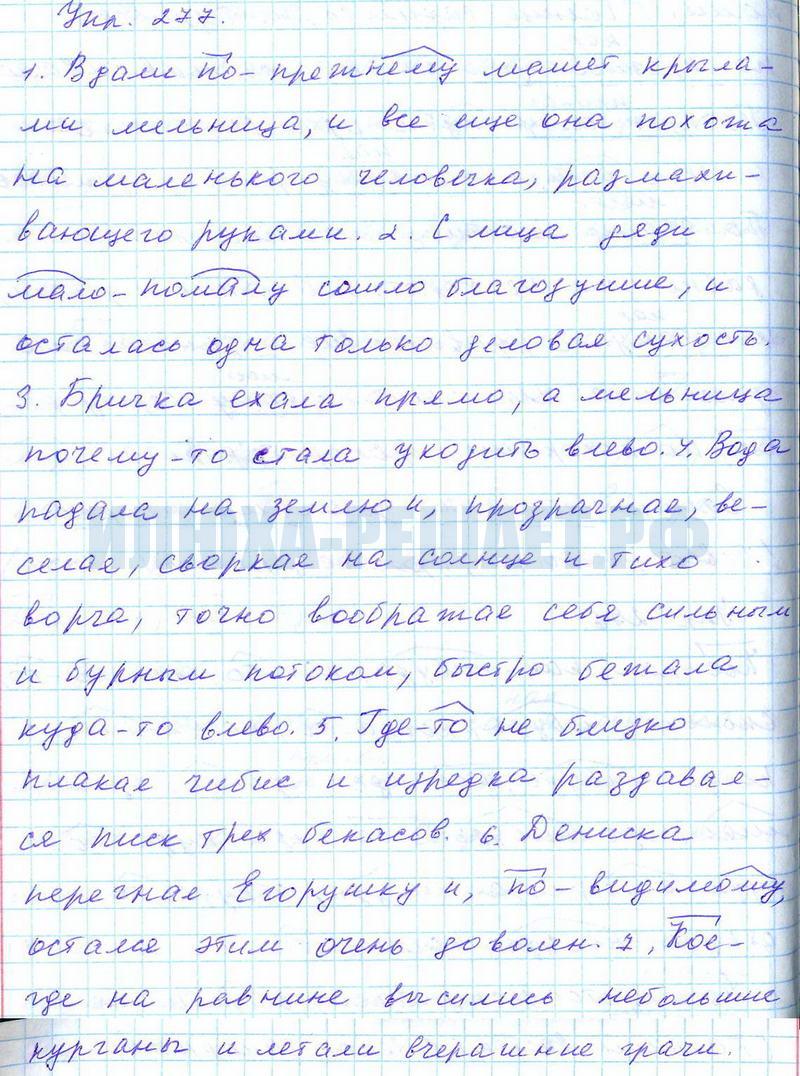 Упр. 277.
1. Вдали по-прежнему машет крыла-
ми мельница, и все еще она похожа
на маленького человечка, размахи-
вающего руками. 2. С лица дяди
мало-помалу сошло благодушие, и
осталась одна только деловая сухость.
3. Бричка ехала прямо, а мельница
почему-то стала уходить влево. 4. Вода
падала на землю и, прозрачная, ве-
селая, сверкая на солнце и тихо
ИЛЮХА-РЕШАЕТ.РФ
ворча, точно воображая себя сильным
и бурным потоком, быстро бежала
куда-то влево. 5. Где-то не близко
плакал чибис и изредка раздавал-
ся писк трех бекасов. 6. Дениска
перегнал Егорушку и, по-видимому,
остался этим очень доволен. 7, Кое-
где на равнине высились небольшие
курганы и летали вчерашние грачи.